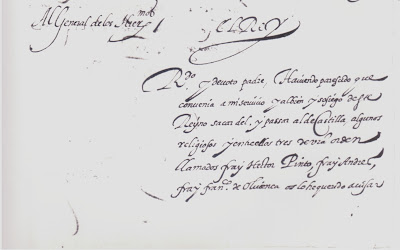 Al General de los Hier.mos
El Rey
R.do y devoto padre. Haviendo parescido que
convenia a mi servicio y al bien y sosiego desse
Reyno sacar del y passar al de Castilla, algunos
religiosos y entre ellos tres de vra orden
llamados fray Hector Pinto, fray Andres,
fray fran.co de Olivenca os lo he querido avisar